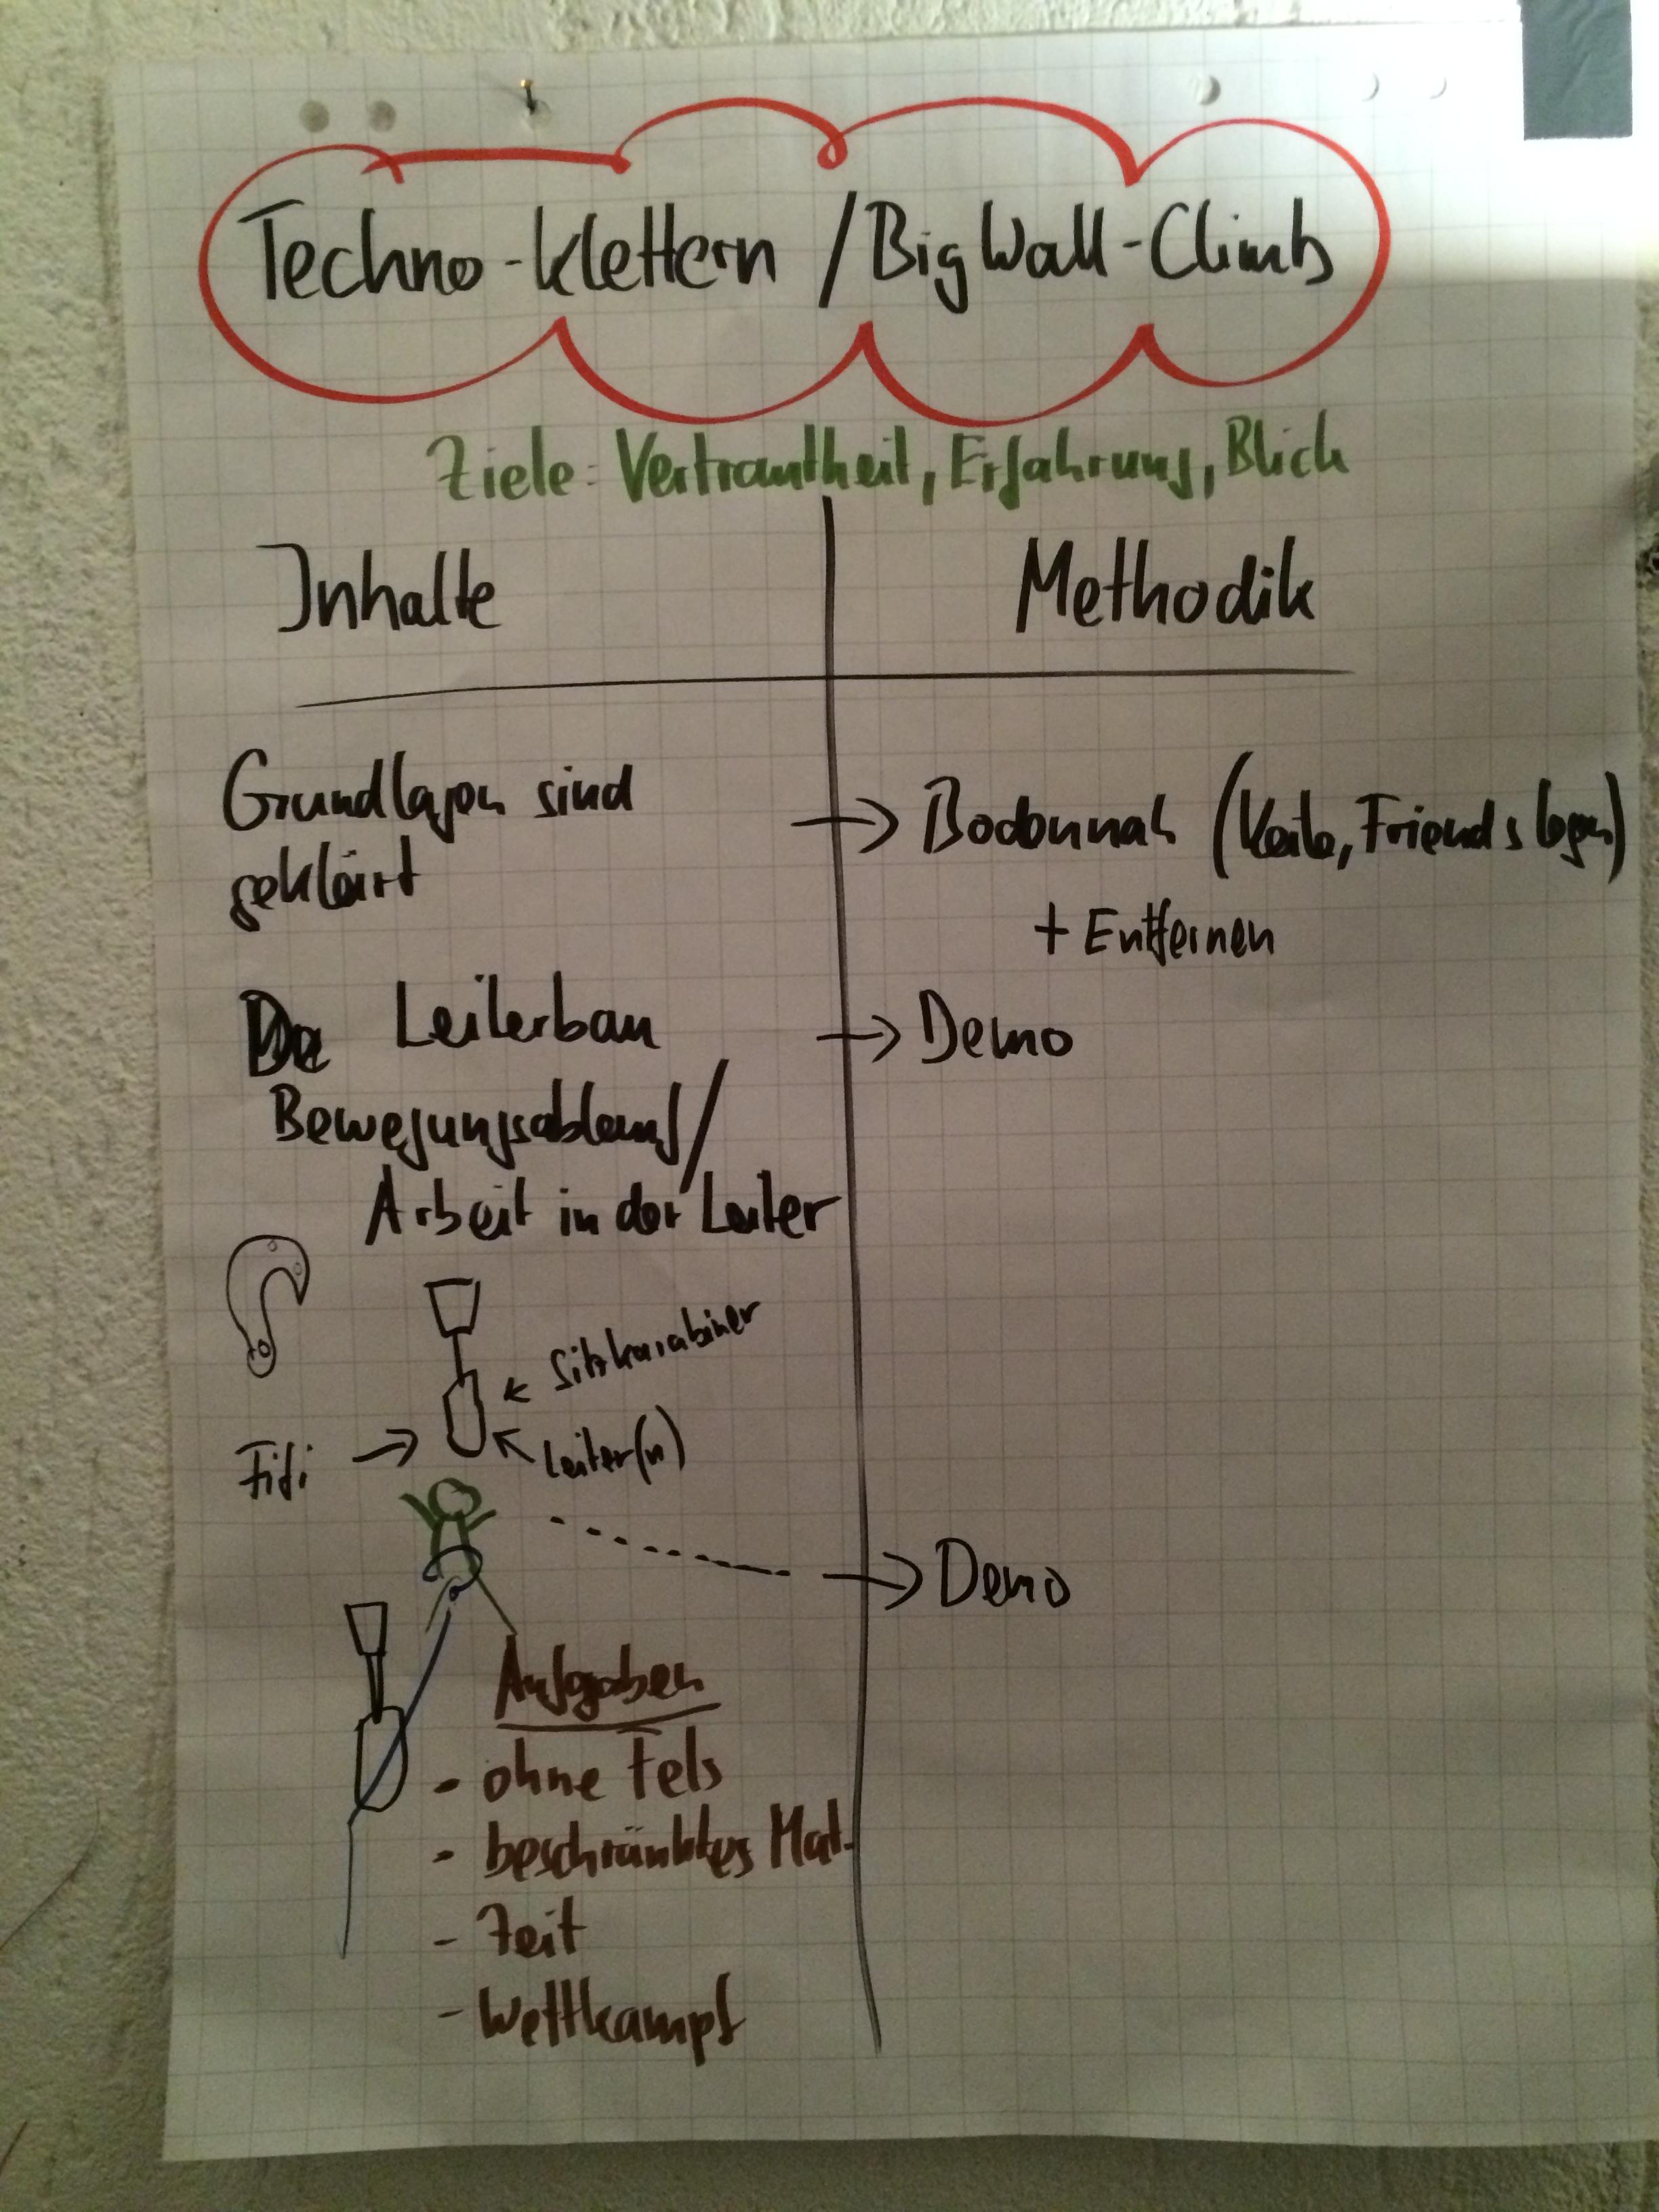 Techno-Klettern / BigWall-Climb
Ziele: Vertrautheit, Erfahrung, Blick
Inhalte
Methodik
Grundlagen sind
geklärt
→ Bodennah (Keile, Friends legen)
+ Entfernen
Leiterbau
→ Demo
Bewegungsablauf/
Arbeit in der Leiter
Sitzkarabiner
Fifi →
Leiter(n)
→ Demo
Aufgaben
- ohne Fels
- beschränktes Mat.
- Zeit
- Wettkampf